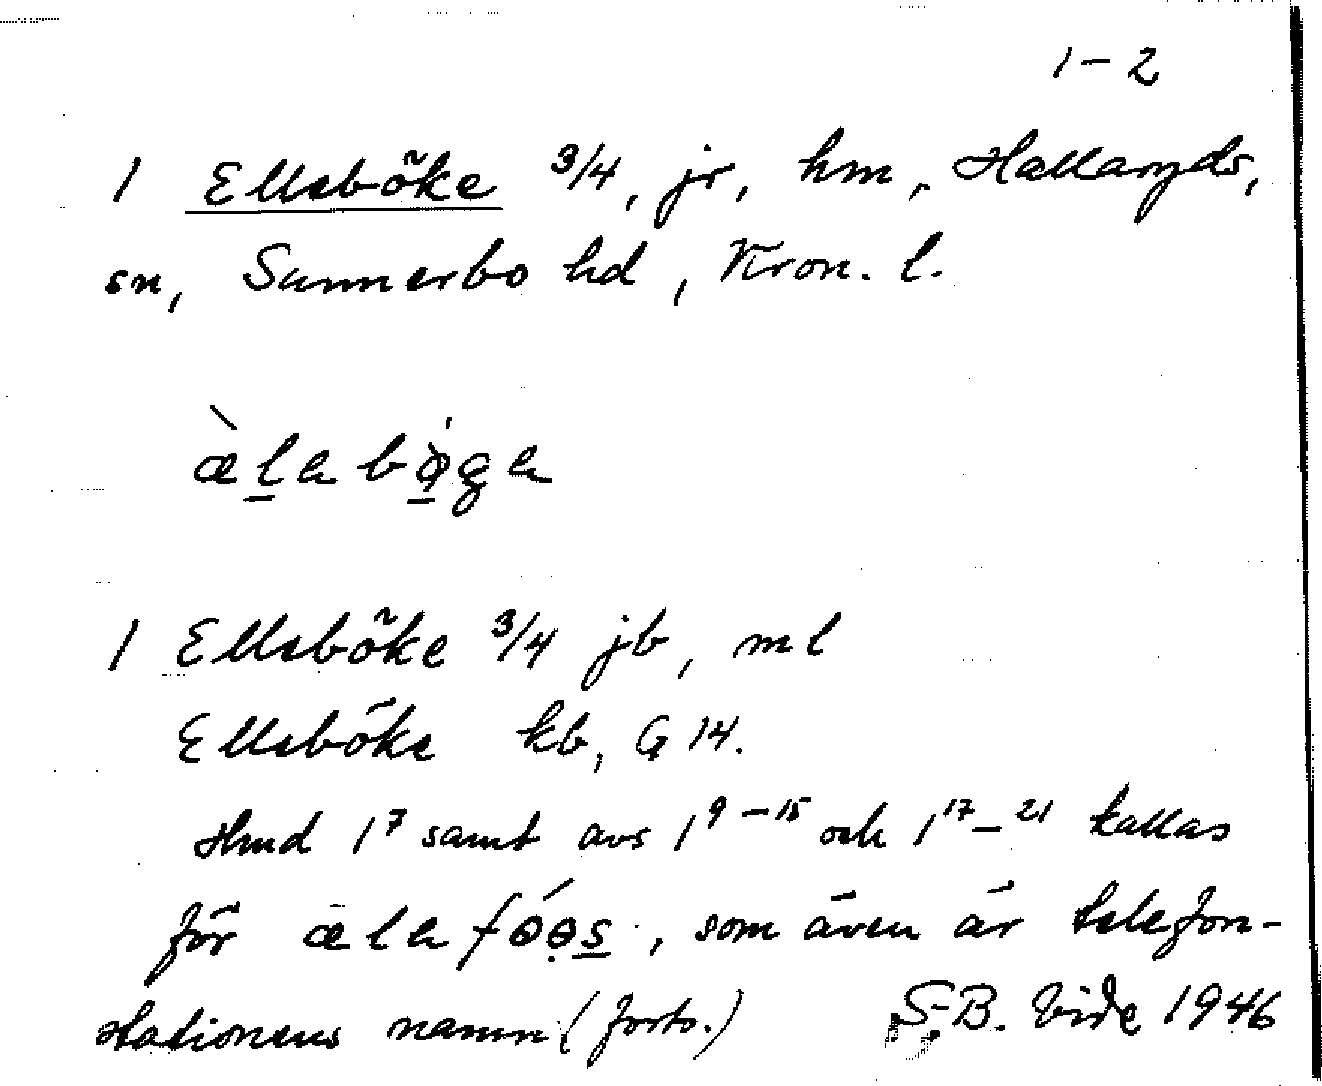 1-2
1 Ellsböke 3/4, jr, hm, Hallaryds,
sn, Sunnerbo hd, Kron. l.
æ̀laboga
1 Ellsböke 3/4 jb, ml
Ellsböke kb, G 14.
Hmd 1⁷ samt avs 1⁹⁻¹⁵ och 1¹⁷⁻²¹ kallas
för ælafǿəs, som även är telefon-
stationens namn (forts.) S-B. Vide 1946